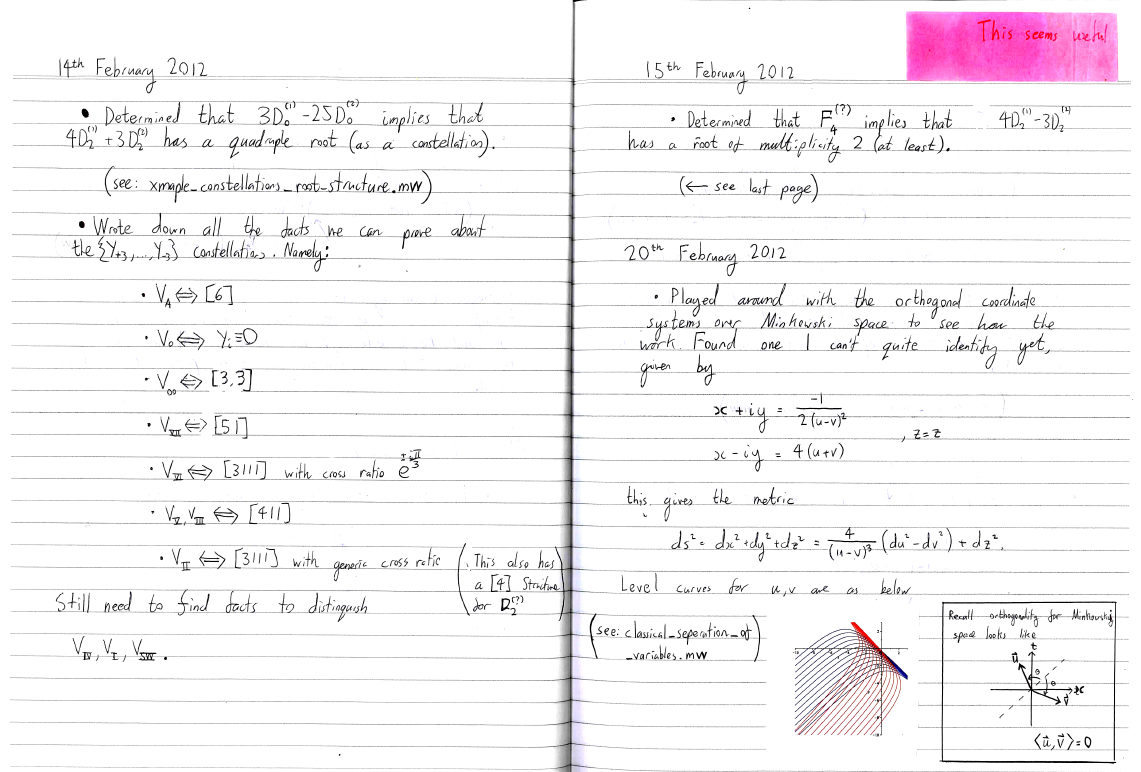 14th February 2012
• Determined that 3D₀⁽¹⁾ - 25D₀⁽²⁾ implies that
4D₂⁽¹⁾ + 3D₂⁽²⁾ has a quadruple root (as a constellation).
(see: xmaple_constellations_root-structure.mw)
• Wrote down all the facts we can prove about
the {Y₊₃,...,Y₋₃} constellations. Namely:
• V_A ⇔ [6]
• V₀ ⇔ Yᵢ≡0
• V_∞ ⇔ [3,3]
• V_VII ⇔ [51]
• V_VI ⇔ [3111] with cross ratio e^{±iπ/3}
• V_V, V_III ⇔ [411]
• V_II ⇔ [3111] with generic cross ratio
(This also has
a [4] Structure
for D₂⁽?⁾)
Still need to find facts to distinguish
V_IV, V_I, V_SW.
This seems useful
15th February 2012
• Determined that F₄⁽?⁾ implies that 4D₂⁽¹⁾ - 3D₂⁽²⁾
has a root of multiplicity 2 (at least).
(← see last page)
20th February 2012
• Played around with the orthogonal coordinate
systems over Minkowski space to see how the
work. Found one I can't quite identify yet,
given by
x + iy = -1/2(u-v)²
, z=z
x - iy = 4(u+v)
this gives the metric
ds² = dx² + dy² + dz² = 4/(u-v)³ (du² - dv²) + dz².
Level curves for u,v are as below
(see: classical_seperation_of
_variables.mw)
Recall orthogonality for Minkowski
space looks like
t
u⃗
θ
θ
x
v⃗
⟨u⃗, v⃗⟩ = 0